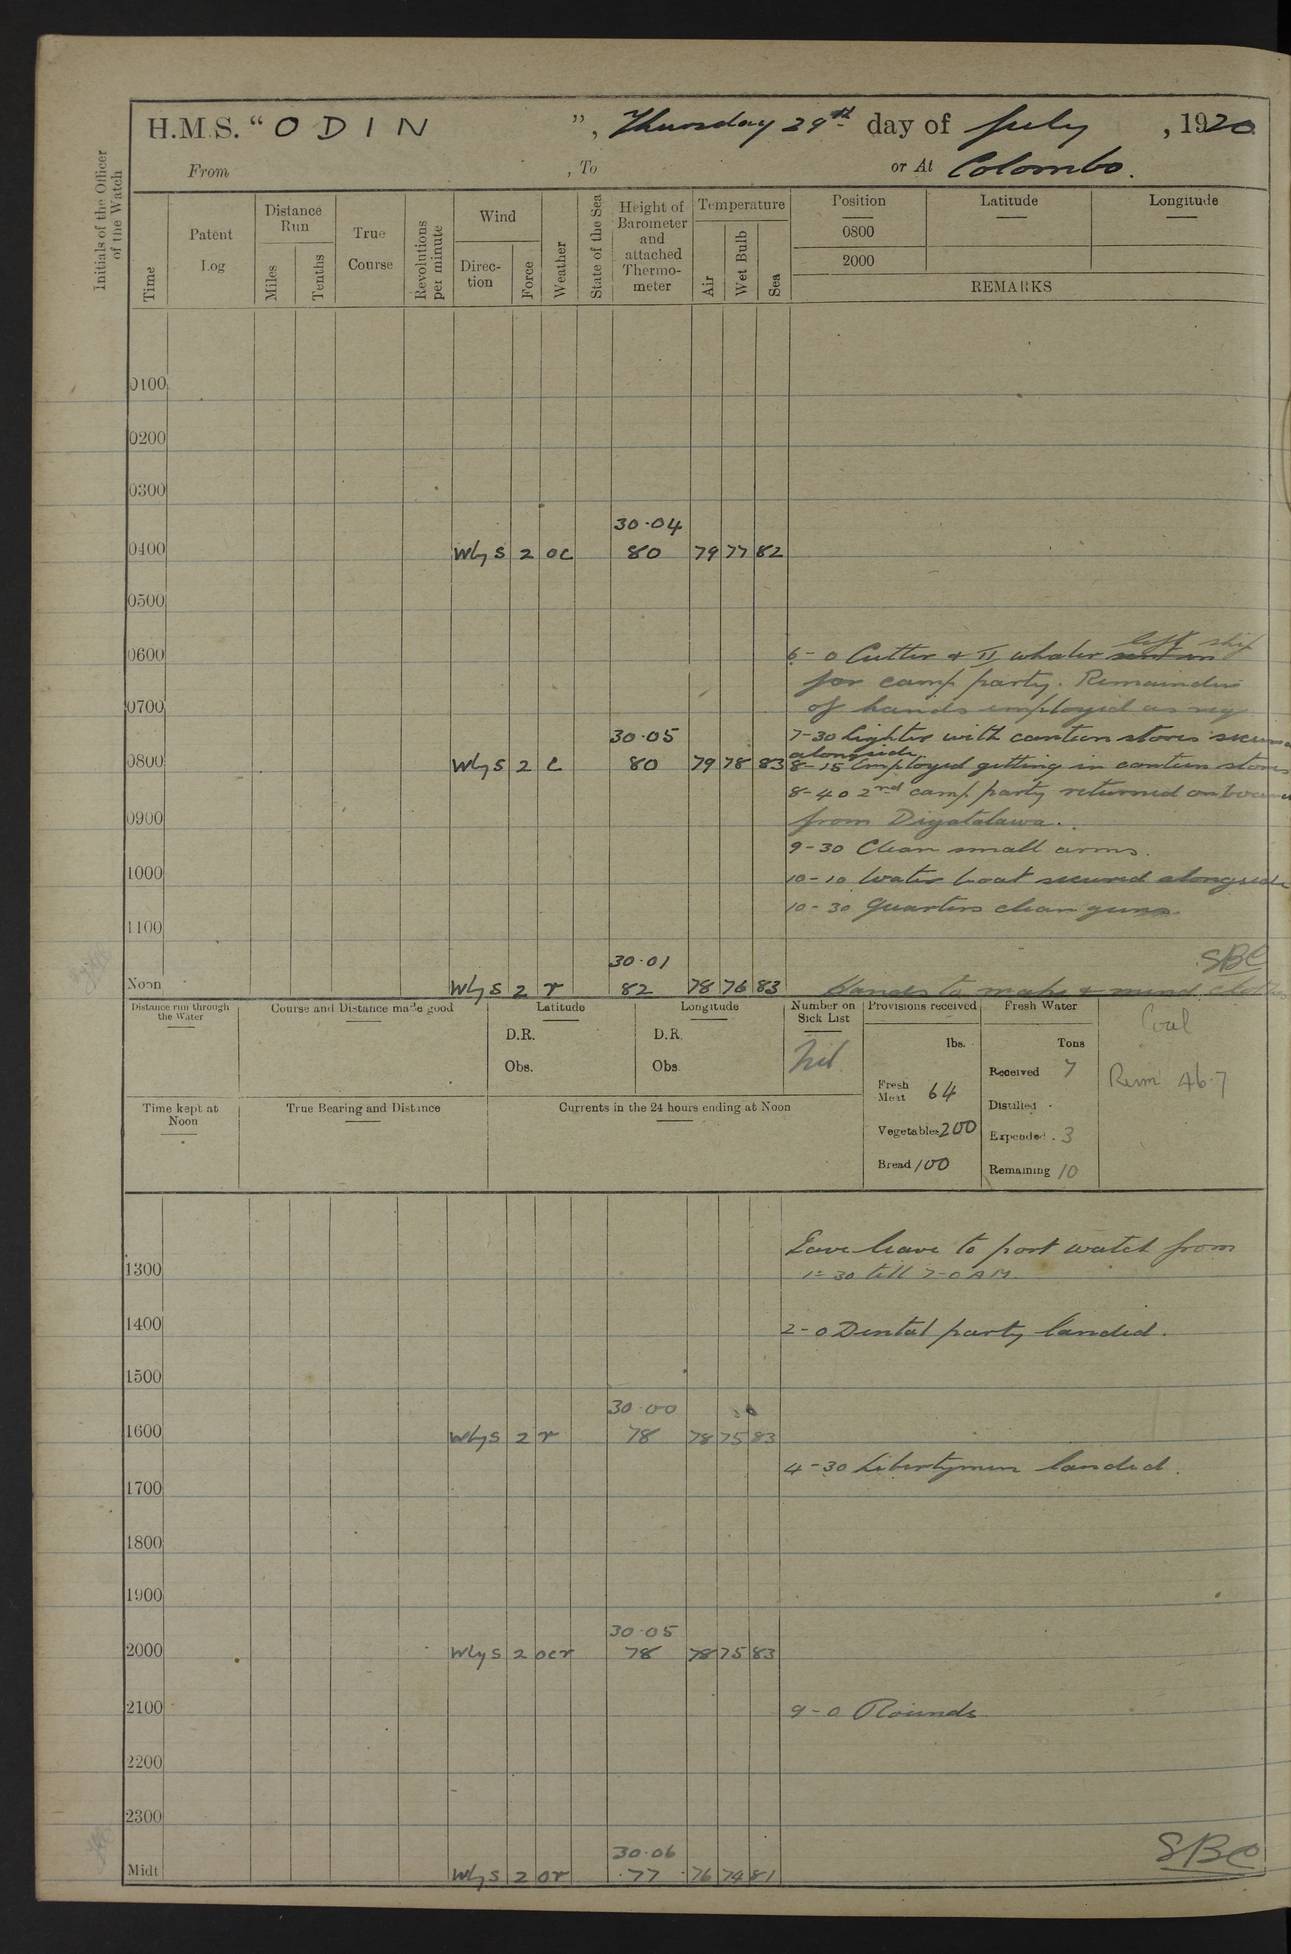 H.M.S. “ODIN”, Thursday 29th day of July, 1920
From , To or At Colombo.
Initials of the Officer of the Watch
Time
Patent Log
Distance Run
Miles
Tenths
True Course
Revolutions per minute
Wind
Direction
Force
Weather
State of the Sea
Height of Barometer and attached Thermometer
Temperature
Air
Wet Bulb
Sea
Position Latitude Longitude
0800
2000
REMARKS
0100
0200
0300
30.04
0400 Wly S 2 oc 80 79 77 82
0500
left ship
0600 6-0 Cutter & II whaler
for camp party. Remainder
0700 of hands employed as req
30.05 7-30 Lighter with canteen stores secured
alongside
0800 Wly S 2 c 80 79 78 83 8-15 Employed getting in canteen stores
8-40 2nd camp party returned on board
0900 from Diyatalawa.
9-30 Clean small arms.
1000 10-10 Water boat secured alongside
10-30 Quarters clean guns
1100
30.01 SBC
Noon Wly S 2 r 82 78 76 83 Hands to make & mend clothes
Distance run through the Water
Course and Distance made good
Latitude
D.R.
Obs.
Longitude
D.R.
Obs.
Number on Sick List
Nil.
Provisions received
lbs.
Fresh Meat 64
Vegetables 200
Bread 100
Fresh Water
Tons
Received 7
Distilled .
Expended . 3
Remaining 10
Coal
Rem 46.7
Time kept at Noon
True Bearing and Distance
Currents in the 24 hours ending at Noon
Gave leave to port watch from
1300 1-30 till 7-0 AM.
1400 2-0 Dental party landed.
1500
30.00
1600 Wly S 2 r 78 78 75 83
4-30 Libertymen landed.
1700
1800
1900
30.05
2000 Wly S 2 ocr 78 78 75 83
2100 9-0 Rounds
2200
2300
30.06 SBC
Midt Wly S 2 or 77 76 74 81